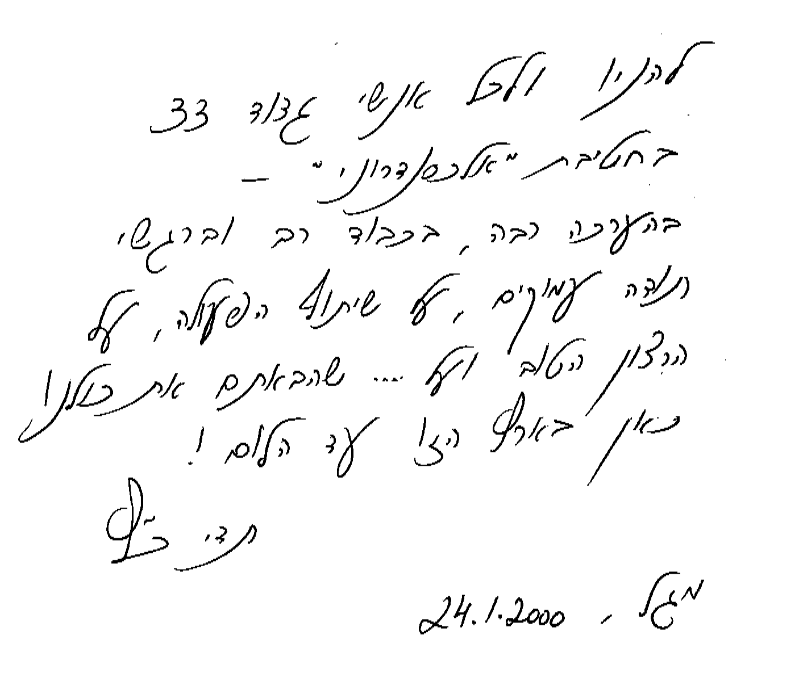 להניו ולכל אנשי גדוד 33
בחטיבת "אלכסנדרוני" –
בהערכה רבה, בכבוד רב וברגשי
תודה עמוקים, על שיתוף הפעולה, על
הרצון הטוב ועל .... שהבאתם את כולנו
כאן בארץ הזו עד הלום!
תדי כ"ץ
מגל, 24.1.2000